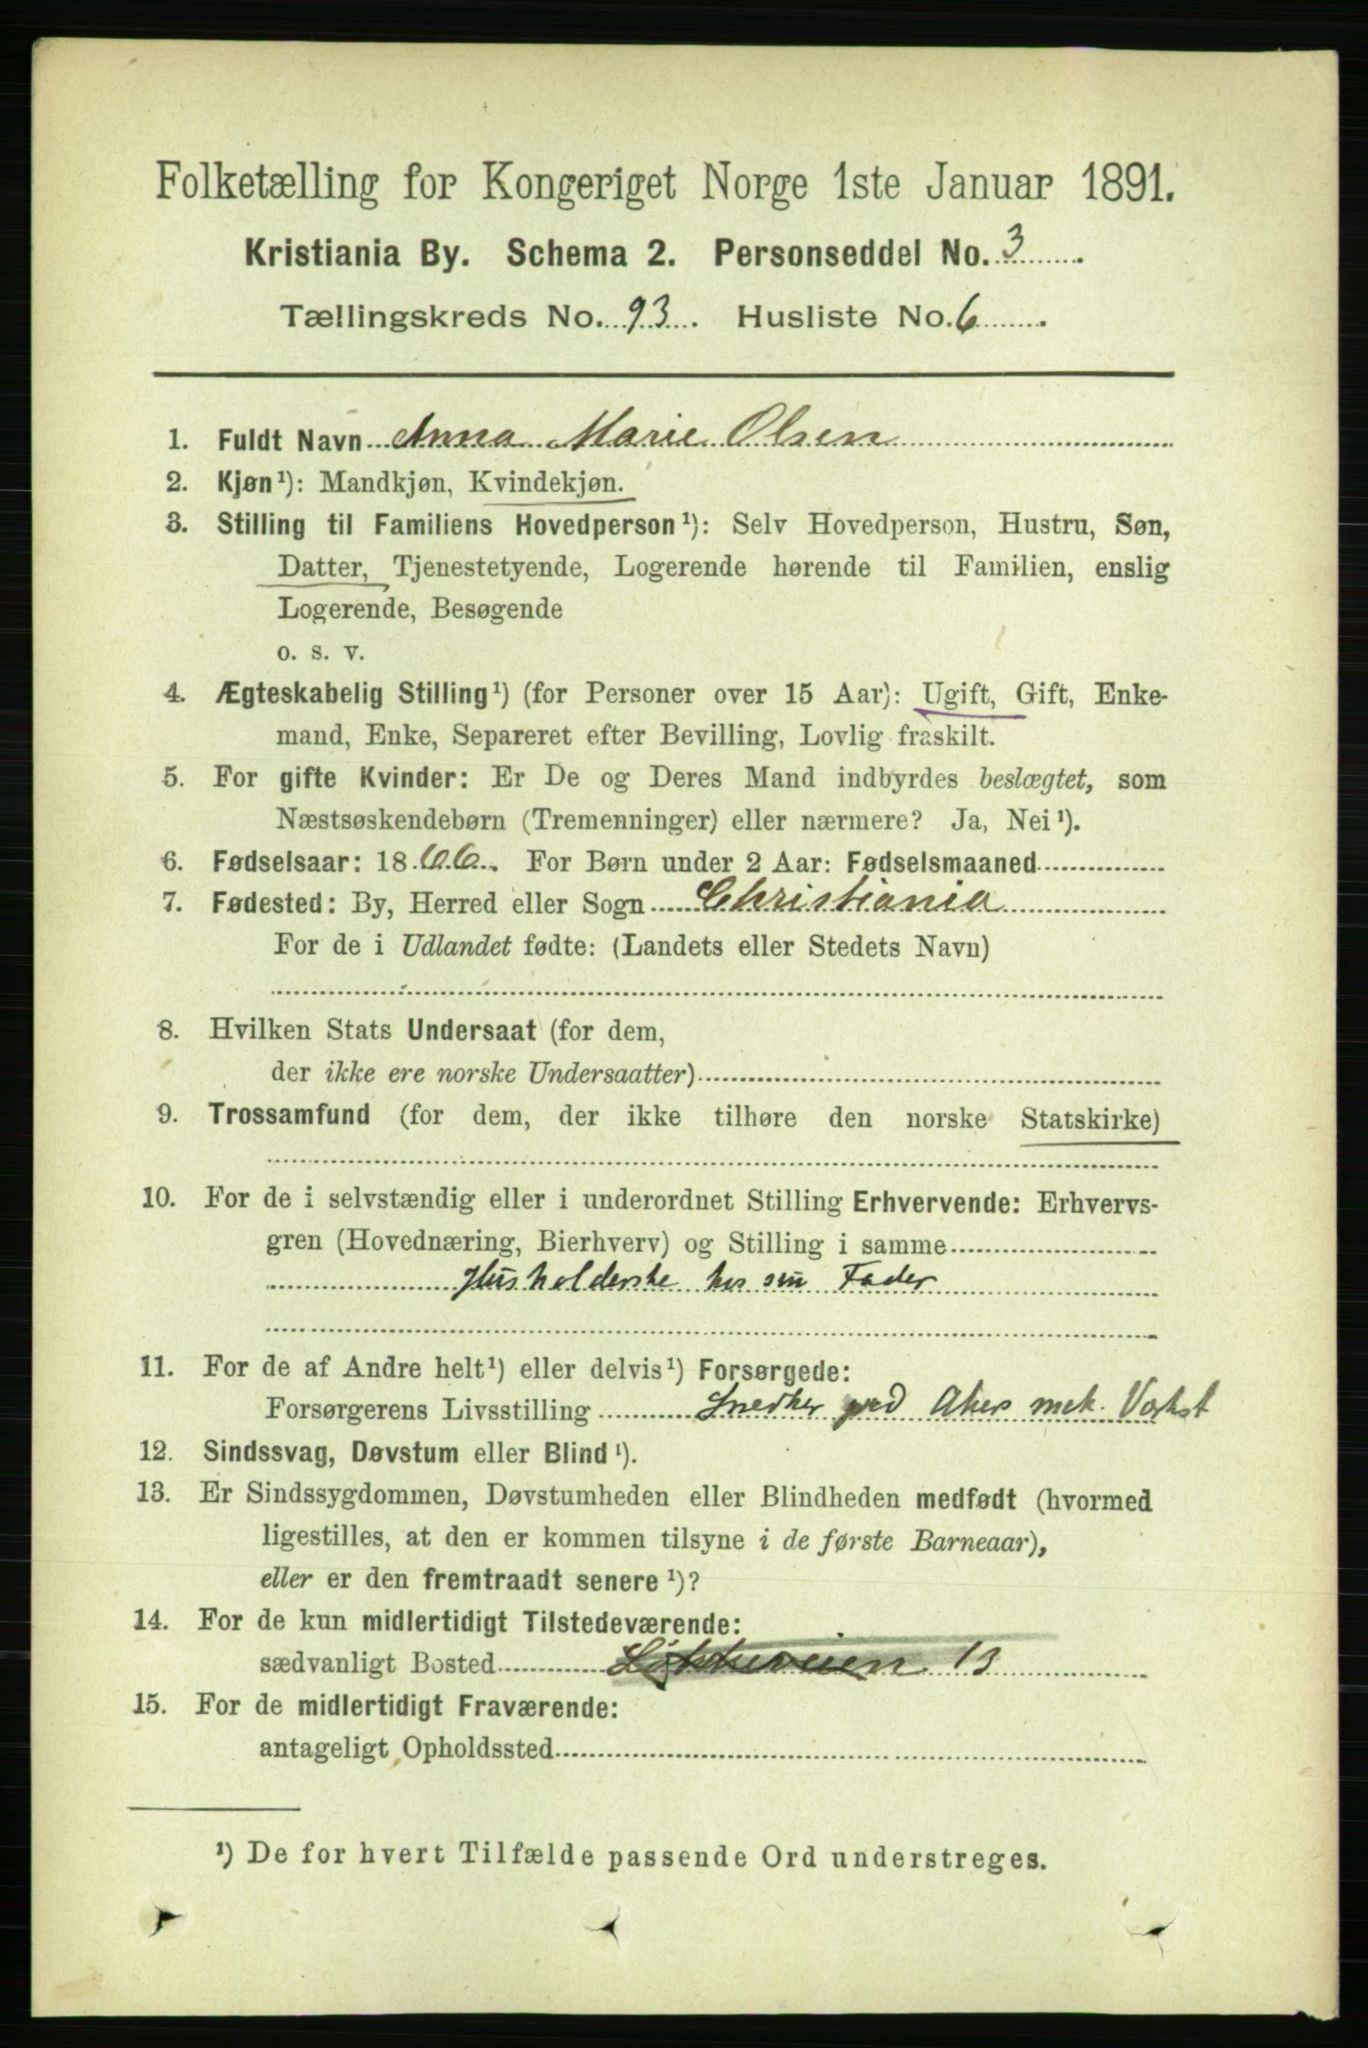 Folketælling for Kongeriget Norge 1ste Januar 1891.
Kristiania By. Schema 2. Personseddel No. 3
Tællingskreds No. 93. Husliste No. 6.
1. Fuldt Navn Anna Marie Olsen
2. Kjøn¹): Mandkjøn, Kvindekjøn.
3. Stilling til Familiens Hovedperson¹): Selv Hovedperson, Hustru, Søn,
Datter, Tjenestetyende, Logerende hørende til Familien, enslig
Logerende, Besøgende
o. s. v.
4. Ægteskabelig Stilling¹) (for Personer over 15 Aar): Ugift, Gift, Enke-
mand, Enke, Separeret efter Bevilling, Lovlig fraskilt.
5. For gifte Kvinder: Er De og Deres Mand indbyrdes beslægtet, som
Næstsøskendebørn (Tremenninger) eller nærmere? Ja, Nei¹).
6. Fødselsaar: 1866. For Børn under 2 Aar: Fødselsmaaned
7. Fødested: By, Herred eller Sogn Christiania
For de i Udlandet fødte: (Landets eller Stedets Navn)
8. Hvilken Stats Undersaat (for dem,
der ikke ere norske Undersaatter)
9. Trossamfund (for dem, der ikke tilhøre den norske Statskirke)
10. For de i selvstændig eller i underordnet Stilling Erhvervende: Erhvervs-
gren (Hovednæring, Bierhverv) og Stilling i samme
Husholderske hos sin Fader
11. For de af Andre helt¹) eller delvis¹) Forsørgede:
Forsørgerens Livsstilling Snedker ved Akers mek. Værkst
12. Sindssvag, Døvstum eller Blind¹).
13. Er Sindssygdommen, Døvstumheden eller Blindheden medfødt (hvormed
ligestilles, at den er kommen tilsyne i de første Barneaar),
eller er den fremtraadt senere¹)?
14. For de kun midlertidigt Tilstedeværende:
sædvanligt Bosted Løkkeveien 13
15. For de midlertidigt Fraværende:
antageligt Opholdssted
¹) De for hvert Tilfælde passende Ord understreges.